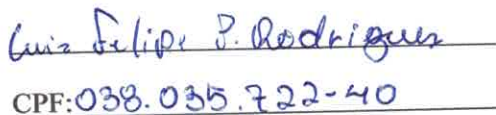 Luiz Felipe P. Rodrigues
CPF:038.035.722-40